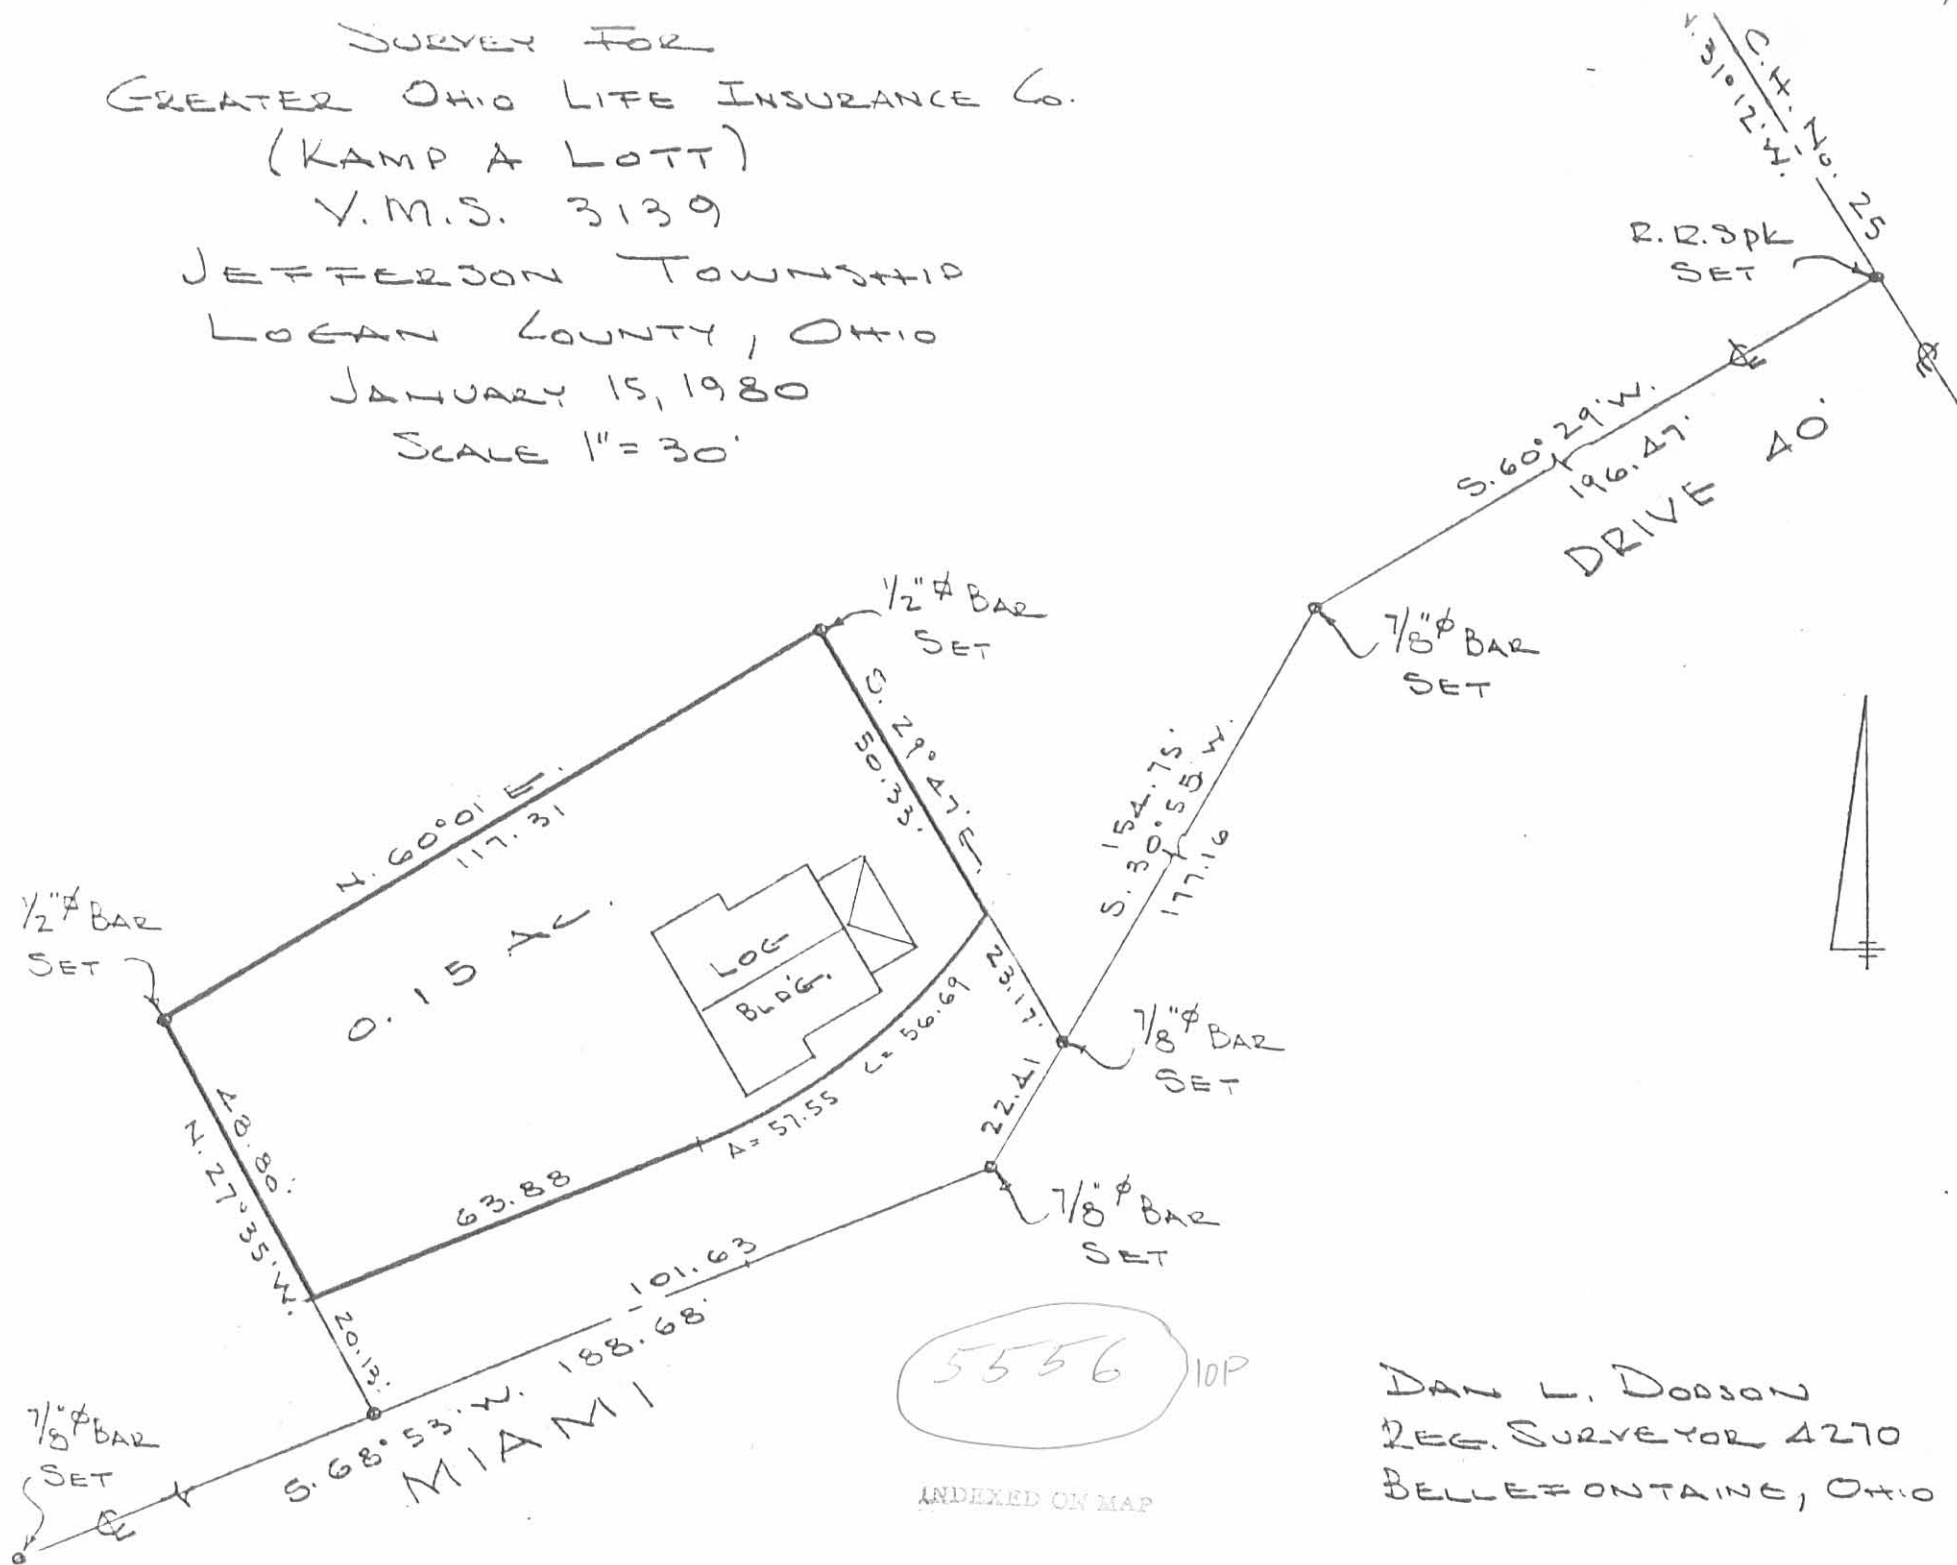 SURVEY FOR
GREATER OHIO LIFE INSURANCE CO.
(KAMP A LOTT)
V.M.S. 3139
JEFFERSON TOWNSHIP
LOGAN COUNTY, OHIO
JANUARY 15, 1980
SCALE 1"= 30'
C.H. No. 25
N. 31°12' W.
R.R. Spk
SET
S. 60° 29' W.
196.47'
DRIVE 40'
1/2"ϕ BAR
SET
7/8"ϕ BAR
SET
S. 29° 47' E.
50.33'
154.75'
S. 30° 55' W.
177.16
N. 60°01' E.
117.31
1/2"ϕ BAR
SET
0.15 AC.
LOG
BLDG.
23.17'
C= 56.69
A= 57.55
7/8"ϕ BAR
SET
22.41
48.80'
N. 27° 35' W.
63.88
7/8"ϕ BAR
SET
101.63
20.13'
S. 68° 53' W. 188.68'
MIAMI
7/8"ϕ BAR
SET
5556
10P
INDEXED ON MAP
DAN L. DODSON
REG. SURVEYOR 4270
BELLEFONTAINE, OHIO